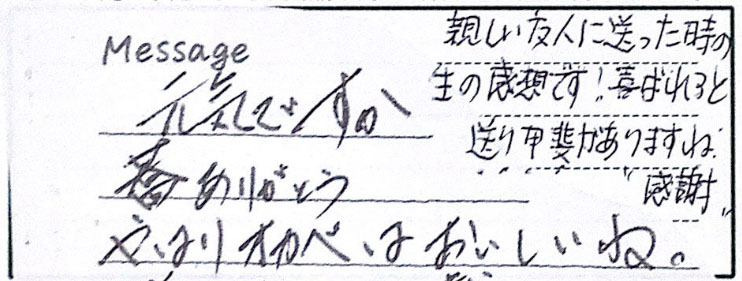 Message
元気ですか
春ありがとう
やはりオカベはおいしいね。
親しい友人に送った時の
生の感想です!喜ばれると
送り甲斐がありますね。
"感謝"